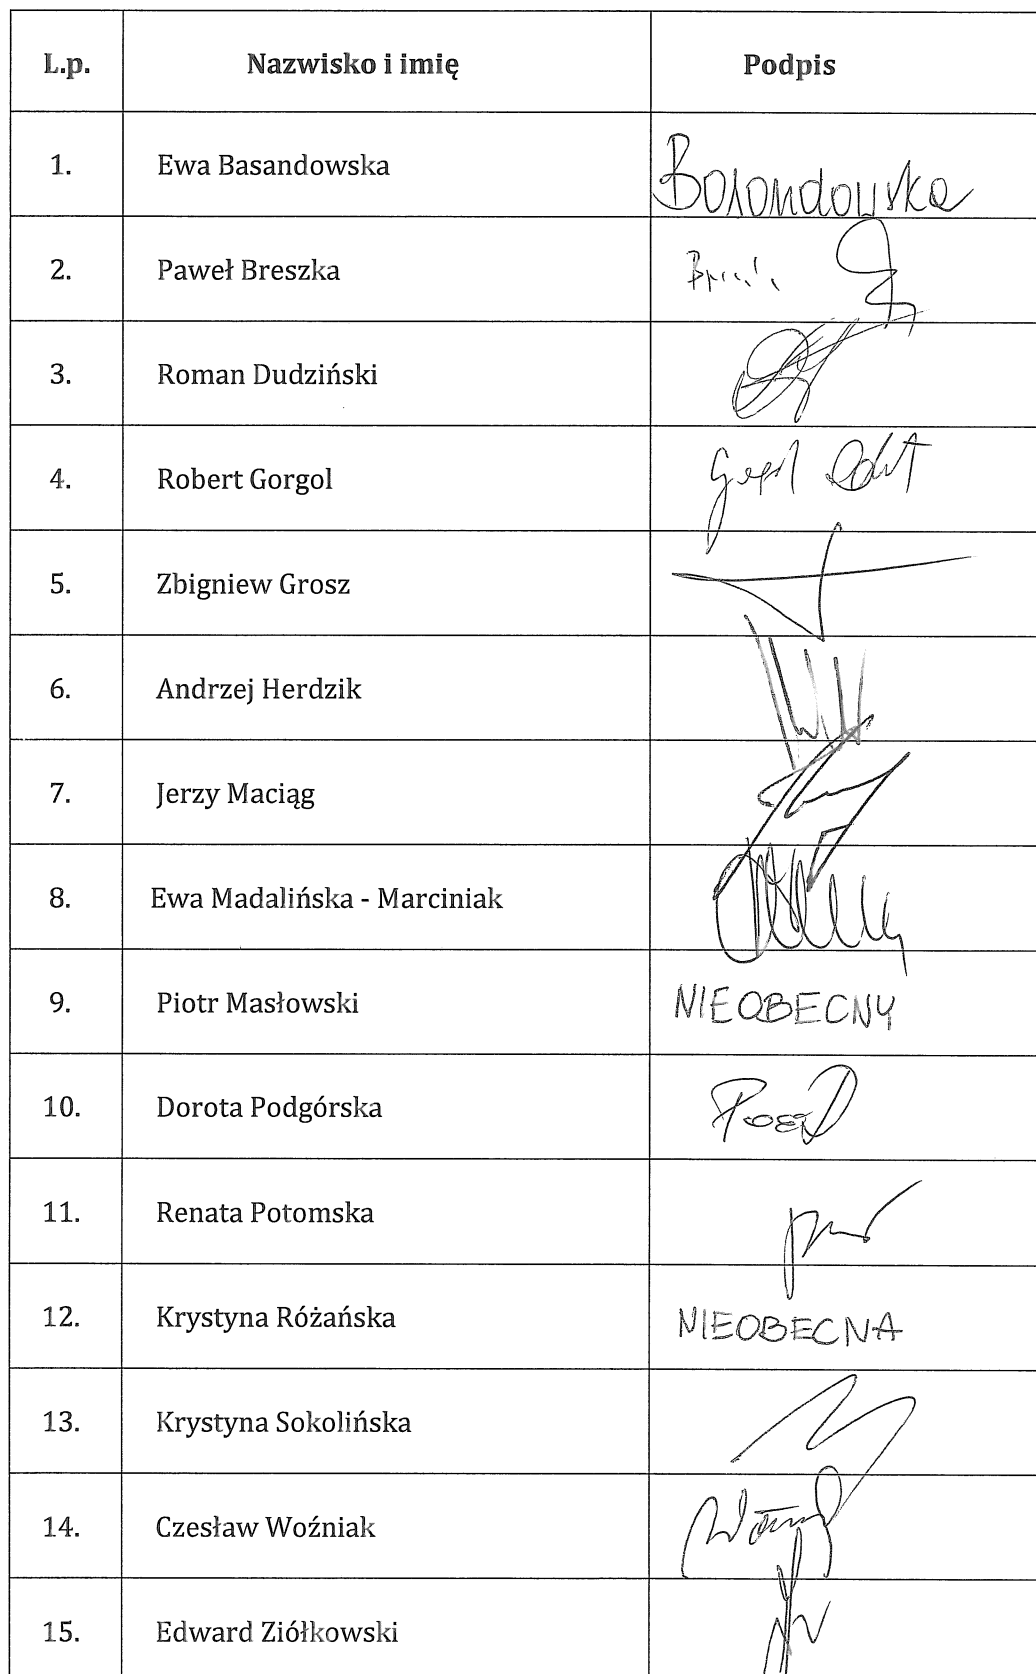 L.p. Nazwisko i imię Podpis
1. Ewa Basandowska Basandowska
2. Paweł Breszka
3. Roman Dudziński
4. Robert Gorgol
5. Zbigniew Grosz
6. Andrzej Herdzik
7. Jerzy Maciąg
8. Ewa Madalińska - Marciniak
9. Piotr Masłowski NIEOBECNY
10. Dorota Podgórska
11. Renata Potomska
12. Krystyna Różańska NIEOBECNA
13. Krystyna Sokolińska
14. Czesław Woźniak
15. Edward Ziółkowski